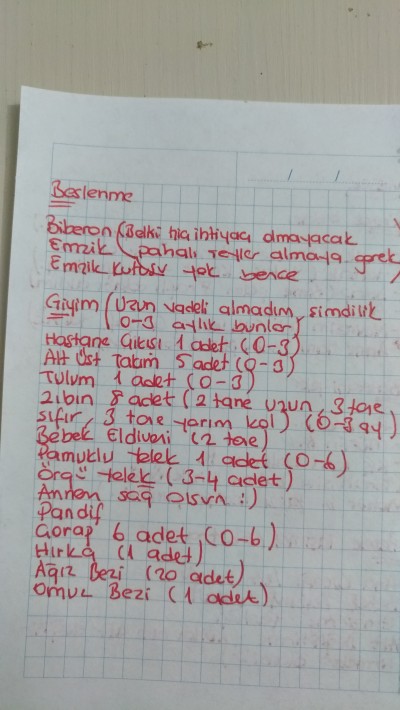 / /
Beslenme
Biberon (Belki hiç ihtiyacı olmayacak
Emzik pahalı şeyler almaya gerek
Emzik kutusu yok bence)
Giyim (Uzun vadeli almadım, şimdilik
0-3 aylık bunlar)
Hastane Çıkışı 1 adet (0-3)
Alt Üst Takım 5 adet (0-3)
Tulum 1 adet (0-3)
Zıbın 8 adet (2 tane uzun, 3 tane
sıfır, 3 tane yarım kol) (0-3 ay)
Bebek Eldiveni (2 tane)
Pamuklu Yelek 1 adet (0-6)
Örgü Yelek (3-4 adet)
Annem sağ olsun :)
Pandif
Çorap 6 adet (0-6)
Hırka (1 adet)
Ağız Bezi (20 adet)
Omuz Bezi (1 adet)